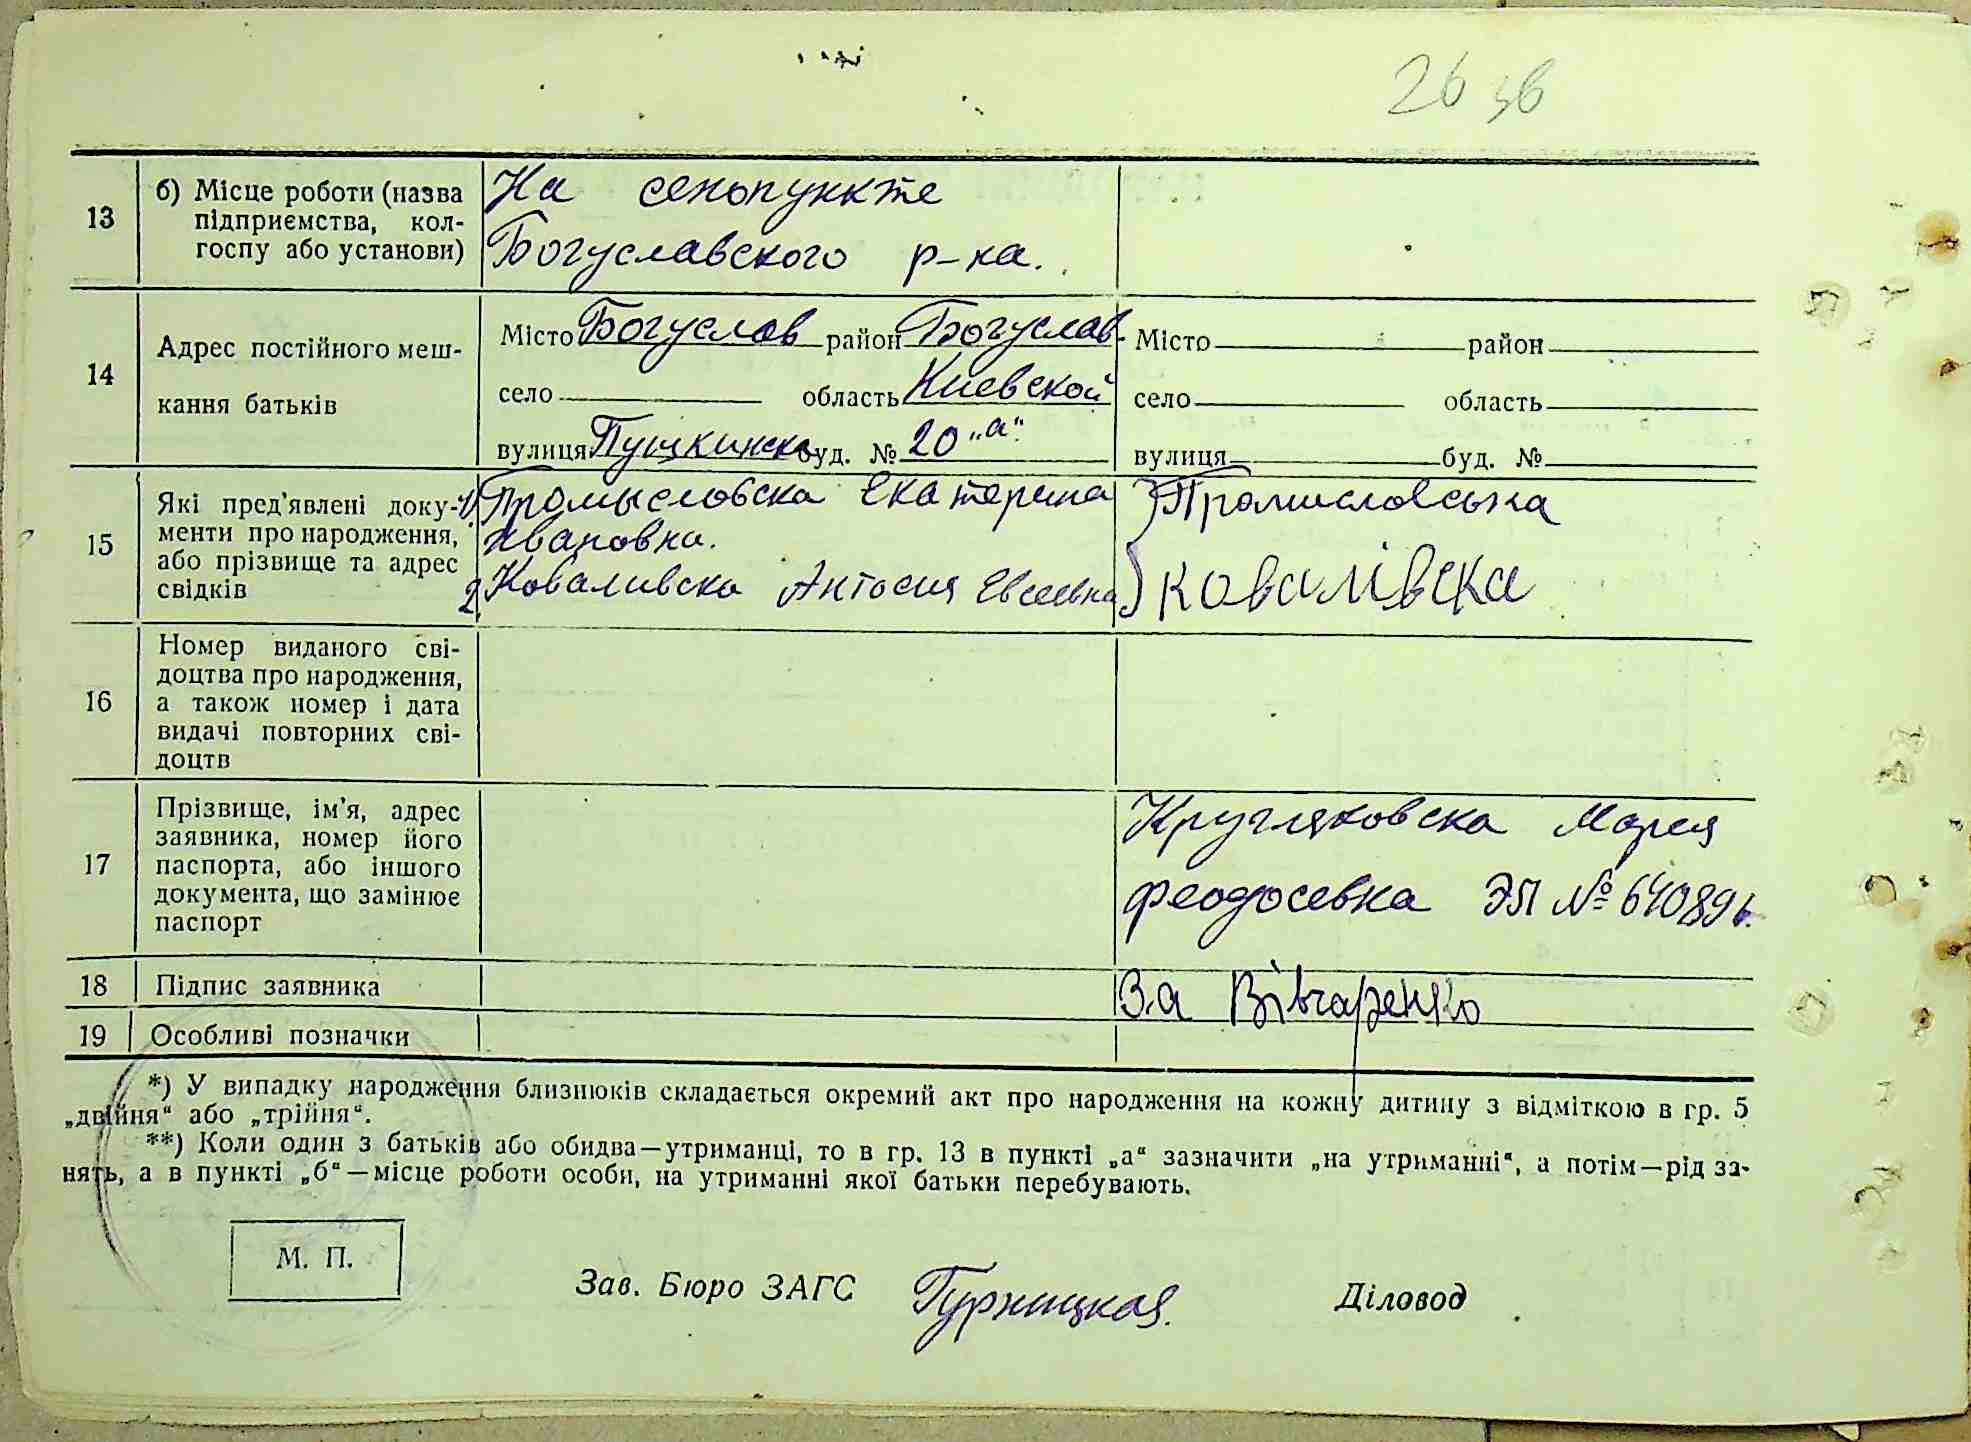 26 зв
13
б) Місце роботи (назва
підприємства, кол-
госпу або установи)
На сенопункте
Богуславского р-на.
14
Адрес постійного меш-
кання батьків
Місто Богуслав район Богуслав-
село область Киевской
вулиця Пушкинска буд. № 20 „а“
Місто район
село область
вулиця буд. №
15
Які пред'явлені доку-
менти про народження,
або прізвище та адрес
свідків
1) Промысловска Екатерина
Ивановна.
2) Коваливска Антосия Евсеевна
Промисловська
Ковалівска
16
Номер виданого сві-
доцтва про народження,
а також номер і дата
видачі повторних сві-
доцтв
17
Прізвище, ім'я, адрес
заявника, номер його
паспорта, або іншого
документа, що замінює
паспорт
Кругляковска Мария
Феодосевна ЭП №
18
Підпис заявника
За Вівчаренко
19
Особливі позначки
*) У випадку народження близнюків складається окремий акт про народження на кожну дитину з відміткою в гр. 5
„двійня“ або „трійня“.
**) Коли один з батьків або обидва—утриманці, то в гр. 13 в пункті „а“ зазначити „на утриманні“, а потім—рід за-
нять, а в пункті „б“—місце роботи особи, на утриманні якої батьки перебувають.
М. П.
Зав. Бюро ЗАГС
Діловод